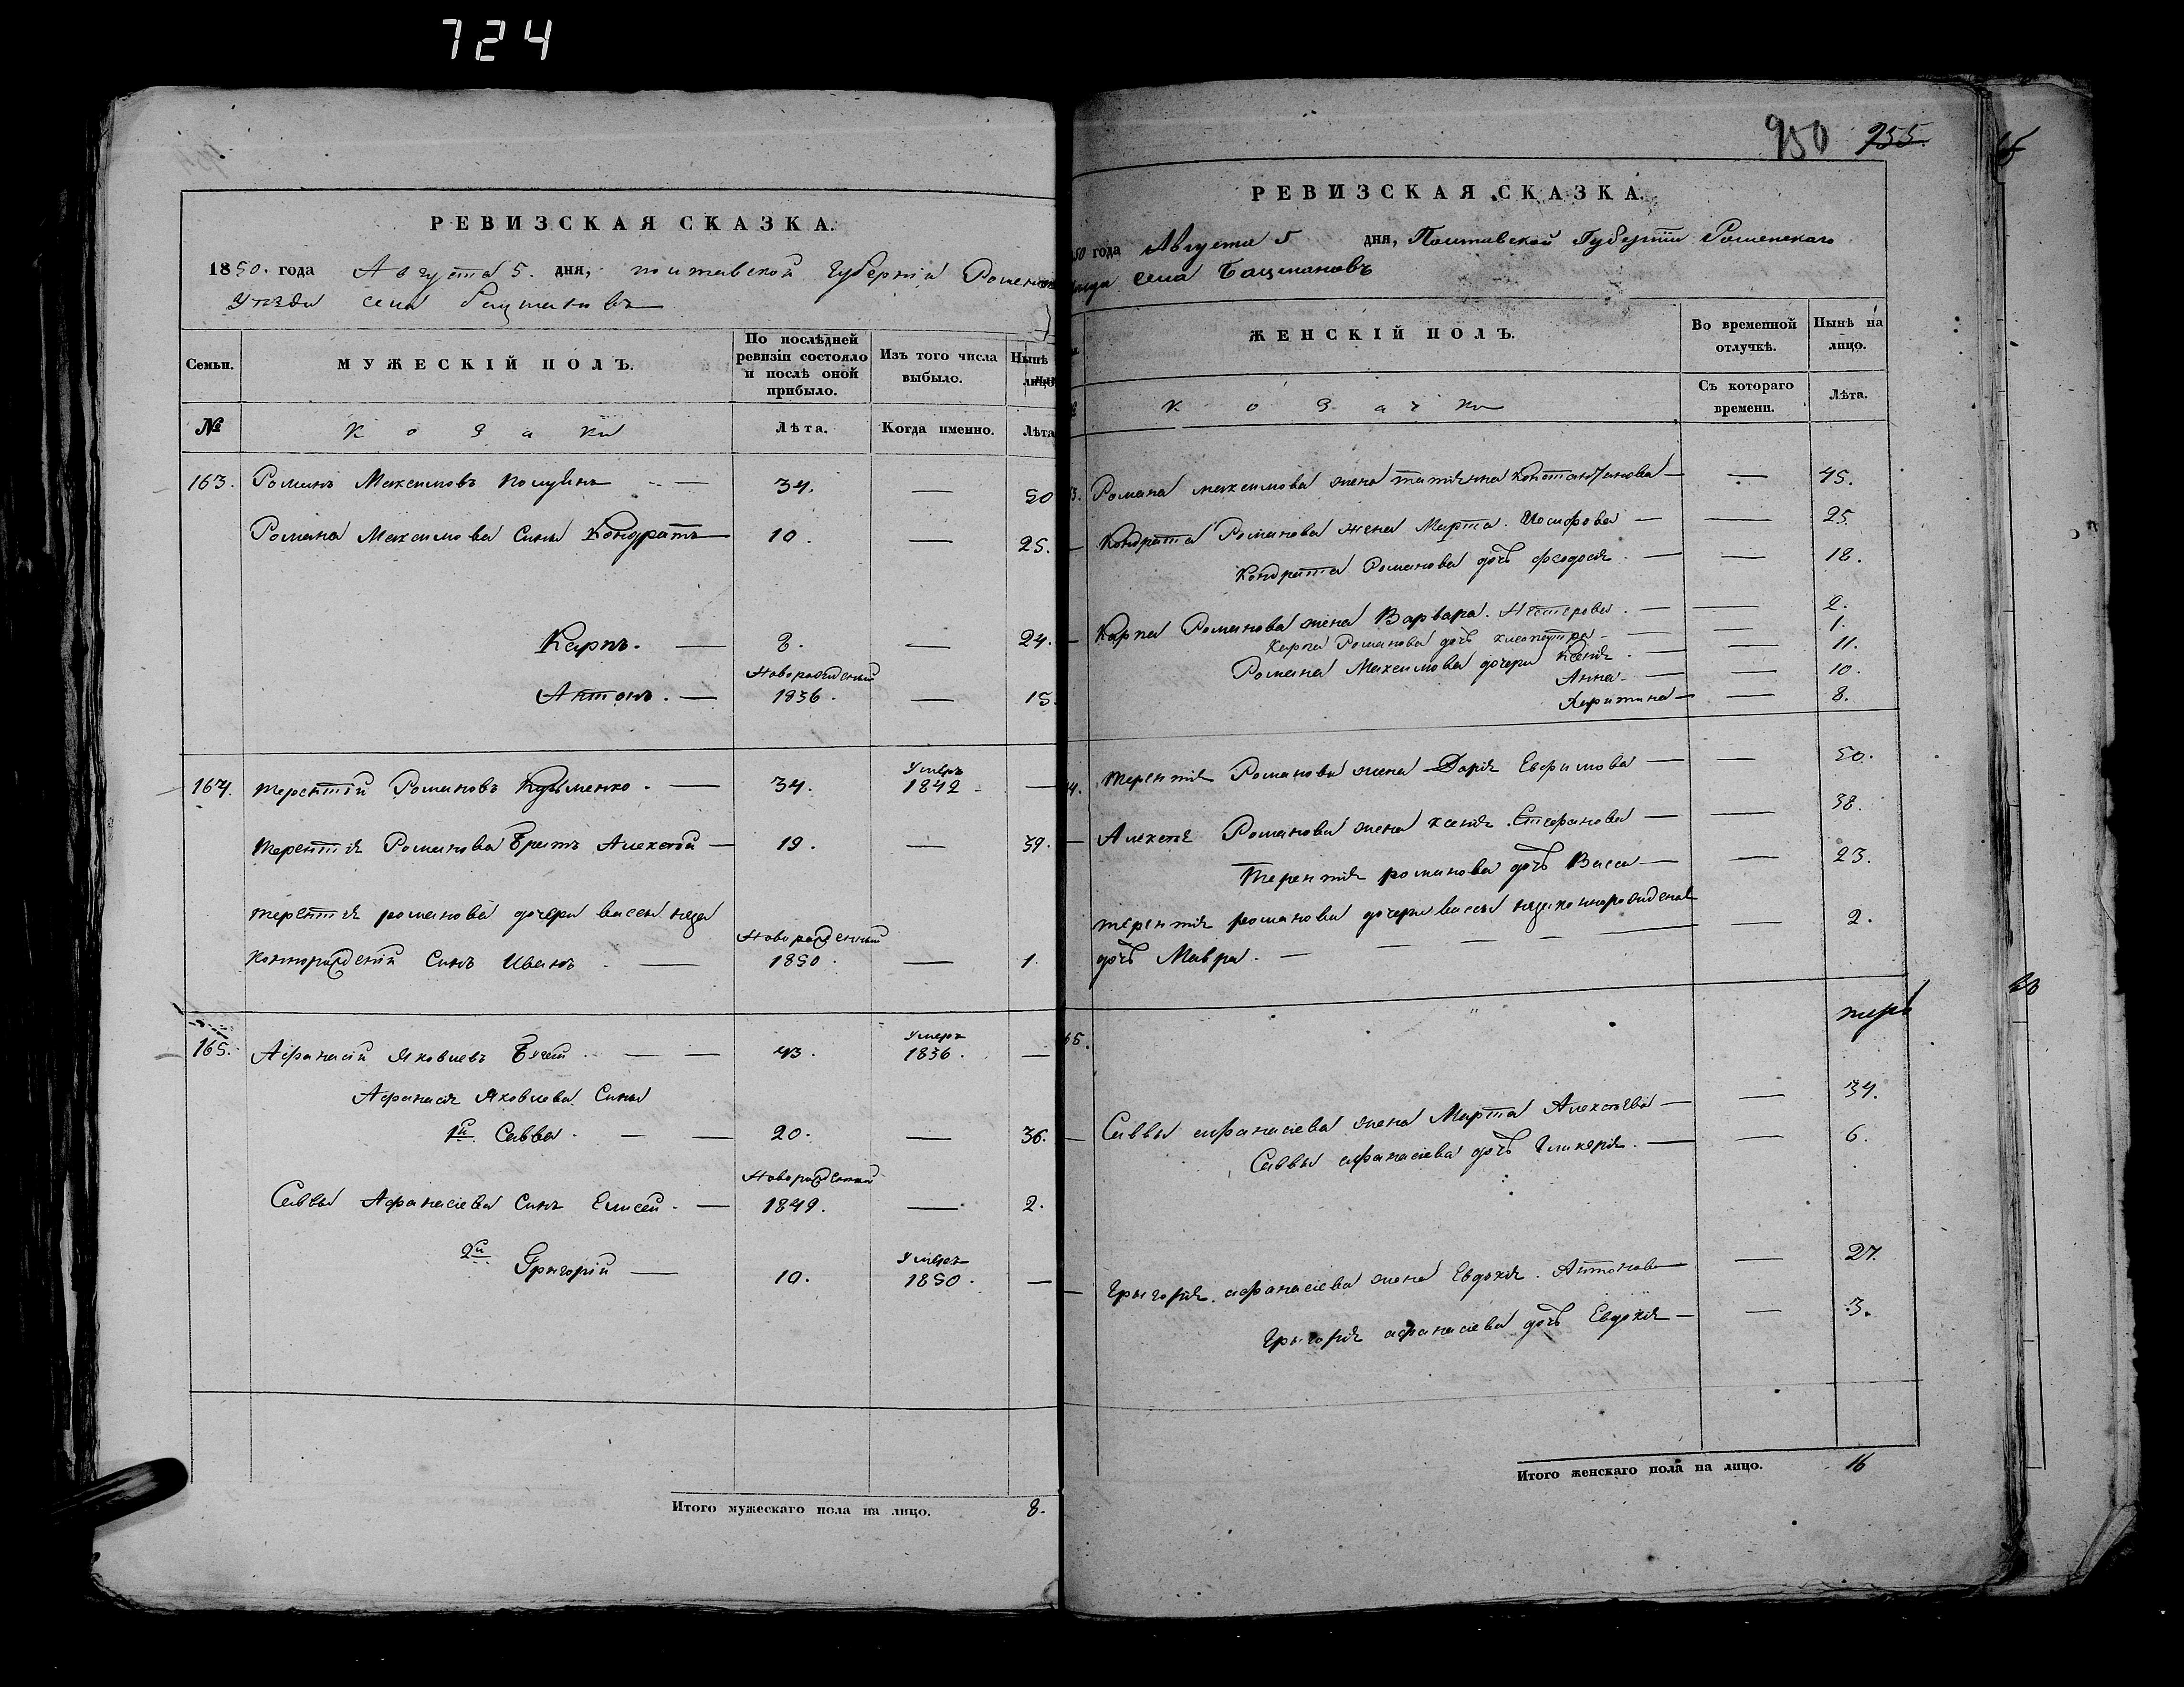 724
РЕВИЗСКАЯ СКАЗКА.
1850. года Августа 5. дня, Полтавской Губерніи Роменс
Уезда села Бацмановъ
Семьи.
МУЖЕСКІЙ ПОЛЪ.
По послѣдней ревизіи состояло и послѣ оной прибыло.
Изъ того числа выбыло.
Нынѣ на лицо
№
Козаки
Лѣта.
Когда именно.
Лѣта
163. Романъ Максимовъ — 34. — 50
Романа Максимова Сины Кондратъ — 10. — 25.
Карпъ. — 8. — 24.
Новорожденный
Антонъ. — 1836. — 15.
164. Терентій Романовъ Кузьменко. — 34. Умеръ 1842 —
Терентія Романова Братъ Алексѣй — 19. — 39.
Терентія Романова дочери Вассы неза
Новорожденный
коннорожденій Синъ Иванъ — 1850. — 1.
165. Афанасій Яковлевъ — 43. Умеръ 1836. —
Афанасія Яковлева Сины
1й Савва. — 20. — 36.
Новорожденный
Саввы Афанасіева Синъ Елисей. — 1849. — 2.
2й Григорій — 10. Умеръ 1850. —
Итого мужескаго пола на лицо. 8.
950 955.
РЕВИЗСКАЯ СКАЗКА.
50 года Августа 5 дня, Полтавской Губерніи Роменскаго
Села Бацмановъ
ЖЕНСКІЙ ПОЛЪ.
Во временной отлучкѣ.
Нынѣ на лицо.
Козачки
Съ котораго времени.
Лѣта.
3. Романа Максимова жена Татіянна — — 45.
Кондрата Романова жена Марта Иосифова — — 25.
Кондрата Романова дочь Феодосія. — — 18.
Карпа Романова жена Варвара. Нестерова. — — 2.
Карпа Романова дочь Клеопатра — 1.
Романа Максимова дочери Ксенія. — — 11.
Анна. — — 10.
Харитина — — 8.
4. Терентія Романова жена Дарія Евфимова — — 50.
Алексѣя Романова жена Ксенія Стефанова — — 38.
Терентія Романова дочь Васса — — 23.
Терентія Романова дочери Вассы незаконнорожденая
дочь Мавра. — — 2.
65.
Саввы Афанасіева жена Марта Алексѣева — — 34.
Саввы Афанасіева дочь Гликерія. — — 6.
Григорія Афанасіева жена Евдокія. Антонова — — 27.
Григорія Афанасіева дочь Евдокія — — 3.
Итого женскаго пола на лицо. 16